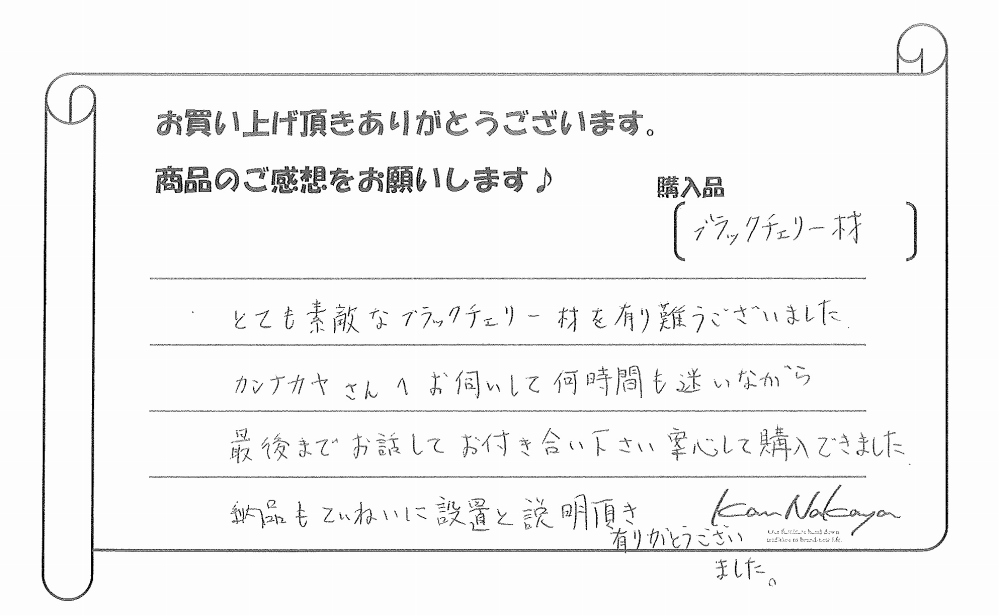 お買い上げ頂きありがとうございます。
商品のご感想をお願いします♪
購入品
ブラックチェリー材
とても素敵なブラックチェリー材を有り難うございました。
カンナカヤさんへお伺いして何時間も迷いながら
最後までお話してお付き合い下さい安心して購入できました
納品もていねいに設置と説明頂き
有りがとうござい
ました。
KanNakaya
Our furniture hand down
tradition to brand-new life.